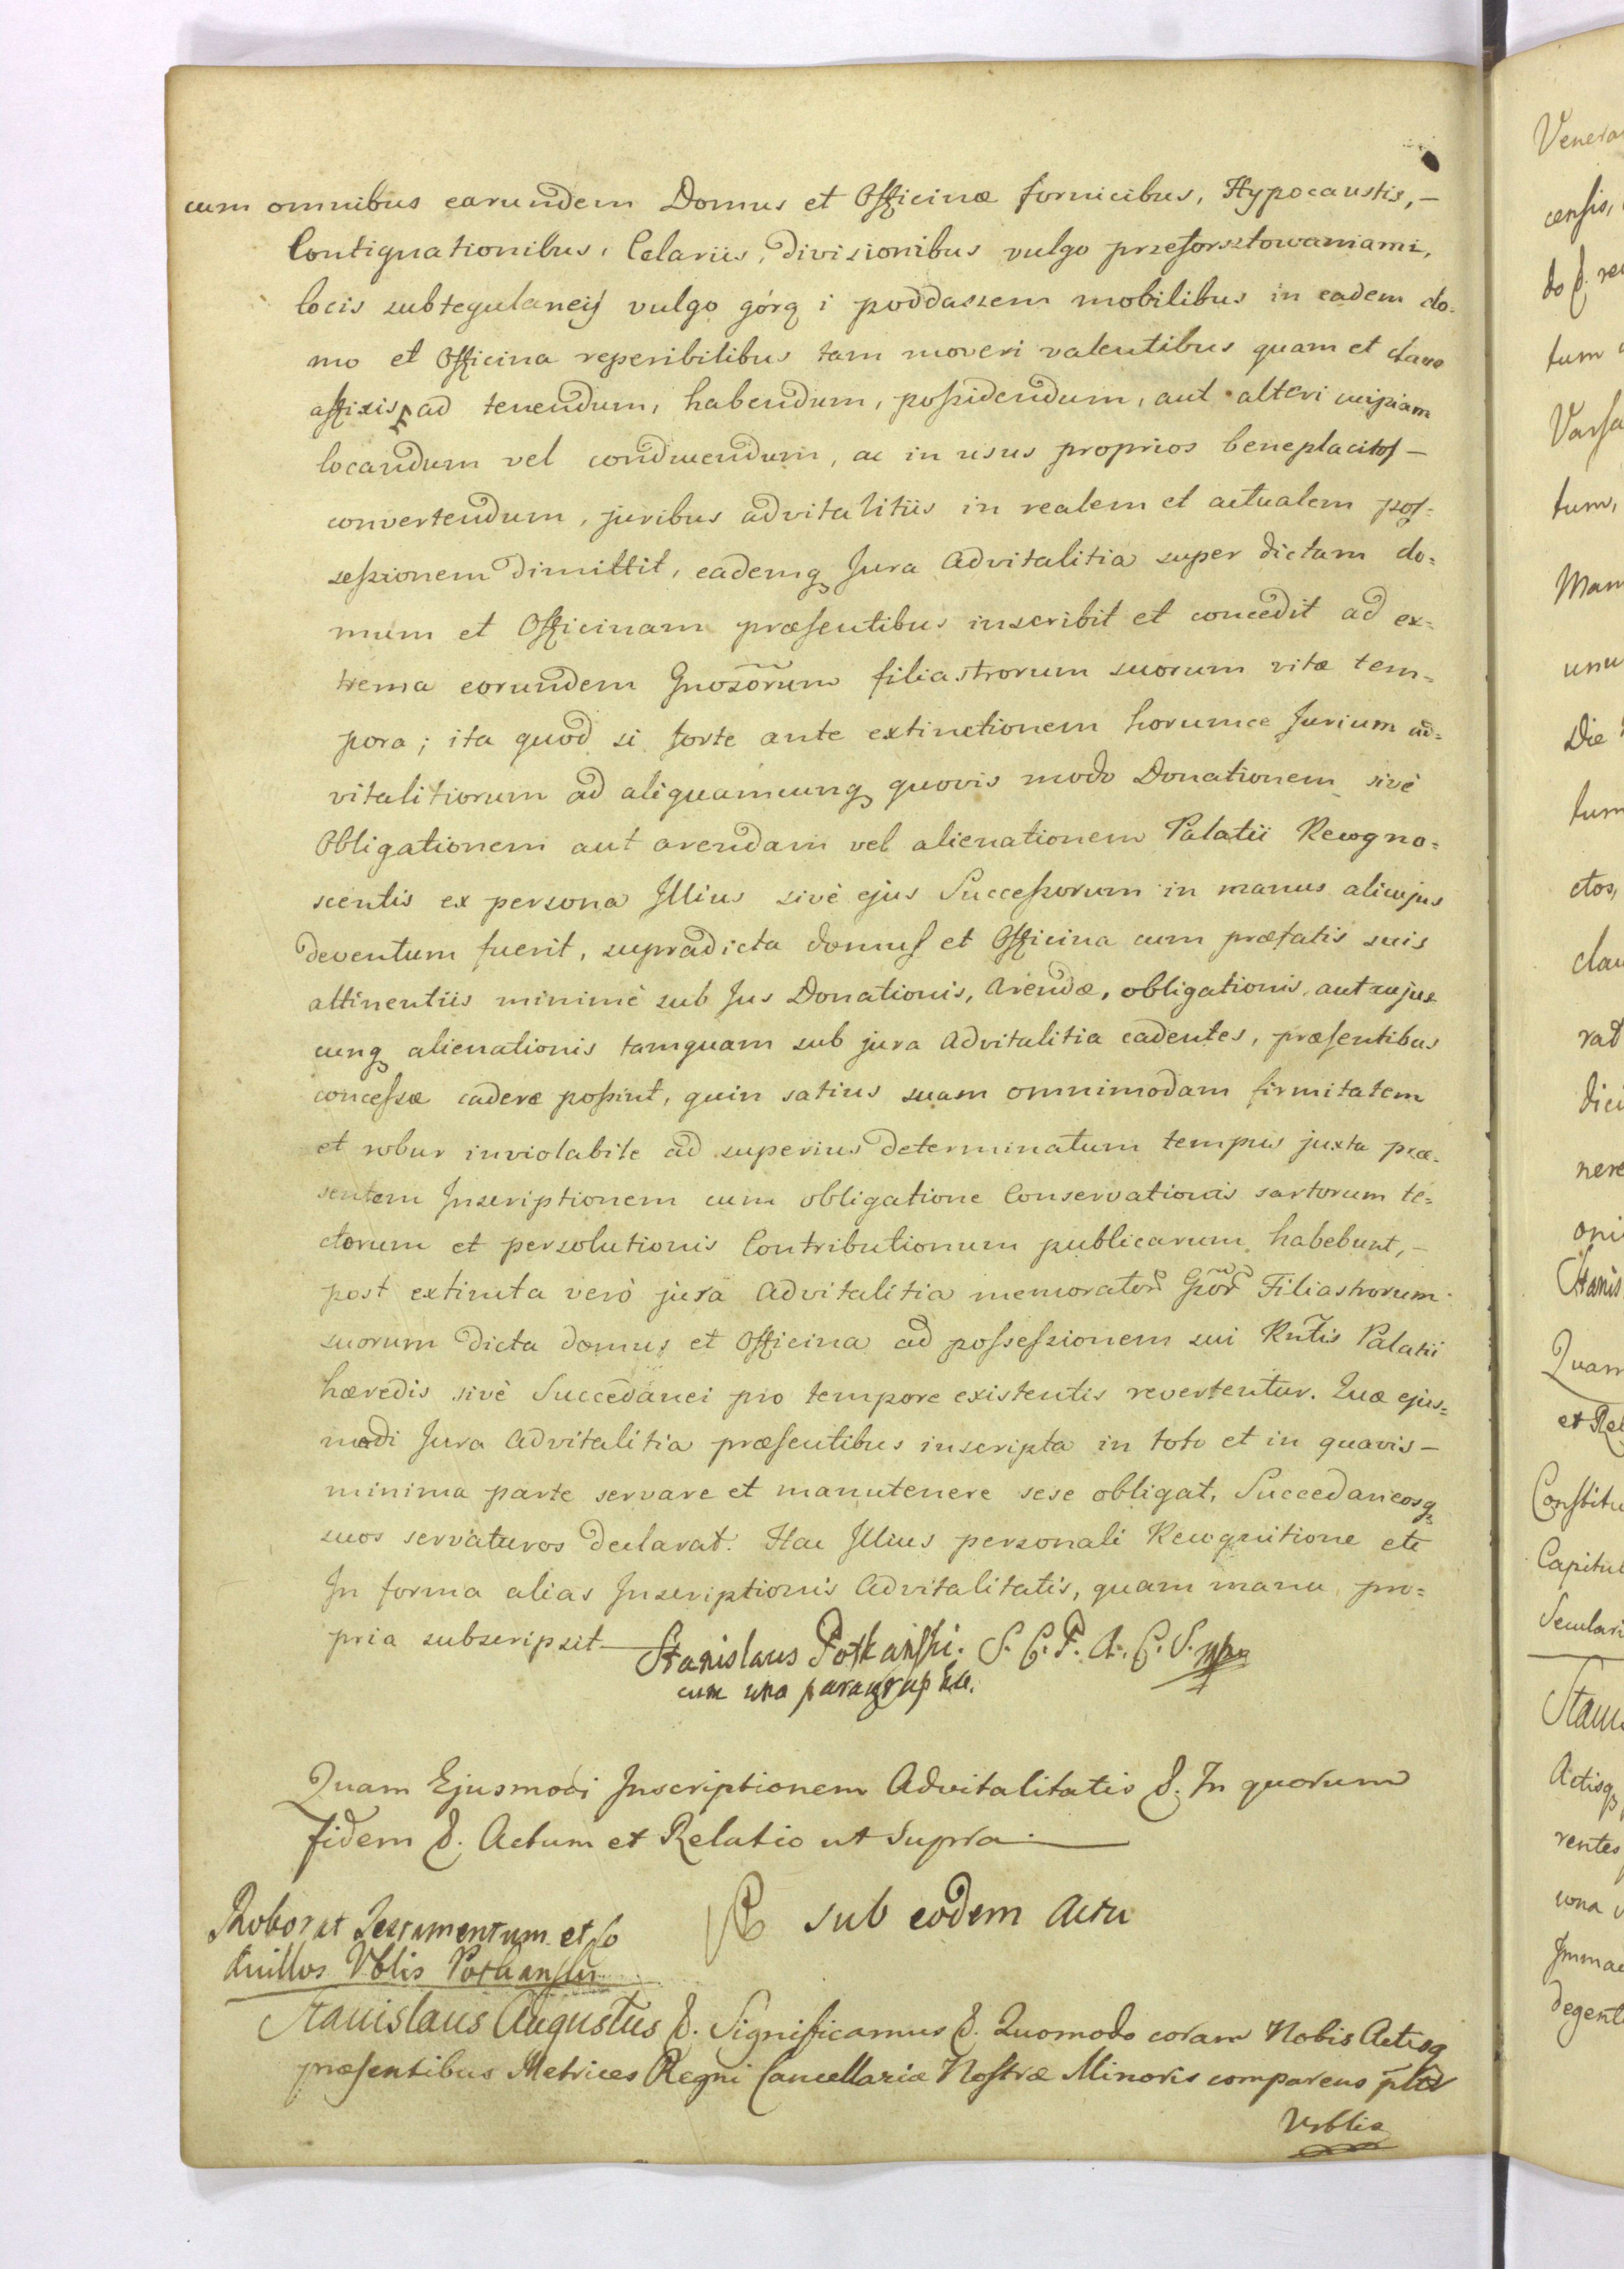 cum omnibus earundem Domus et Officinæ fornicibus, Hypocaustis, –
Contignationibus, Celariis, divisionibus vulgo przeforsztowaniami,
locis subtegulaneij vulgo górą i poddaszem mobilibus in eadem do=
mo et Officina reperibilibus tam moveri valentibus quam et clavo
affixis, ad tenendum, habendum, possidendum, aut alteri cuipiam
locandum vel conducendum, ac in usus proprios beneplacitos –
convertendum, juribus advitalitiis in realem et actualem pos=
sessionem dimittit, eademq Jura Advitalitia super dictam do=
mum et Officinam præsentibus inscribit et concedit ad ex=
trema eorundem Gnosorum filiastrorum suorum vitæ tem=
pora; ita quod si forte ante extinctionem horumce Jurium ad=
vitalitiorum ad aliquamcunq quovis modo Donationem sivè
Obligationem aut arendam vel alienationem Palatii Recogno=
scentis ex persona Illius sivè ejus Successorum in manus alicujus
deventum fuerit, supradicta domus et Officina cum præfatis suis
attinentiis minimè sub Jus Donationis, Arendæ, obligationis, aut cujus
cunq alienationis tamquam sub jura Advitalitia cadentes, præsentibus
concessæ cadere possint, quin satius suam omnimodam firmitatem
et robur inviolabile ad superius determinatum tempus juxta præ=
sentem Inscriptionem cum obligatione Conservationis sartorum te=
ctorum et persolutionis Contributionum publicarum habebunt, –
post extincta verò jura Advitalitia memorator Gnor Filiastrorum
suorum dicta domus et Officina ad possessionem sui Rntis Palatii
hæredis sivè Succedanei pro tempore existentis revertentur. Quæ ejus=
modi Jura Advitalitia præsentibus inscripta in toto et in quavis –
minima parte servare et manutenere sese obligat, Succedaneosq
suos servaturos declarat. Hac Illius personali Recognitione etc
In forma alias Inscriptionis Advitalitatis, quam manu pro=
pria subscripsit – Stanislaus Potkański. S. C. P. A. C. S. mpa
cum una paragraphæ.
Quam Ejusmodi Inscriptionem Advitalitatis &. In quorum
fidem &. Actum et Relatio ut supra
sub eodem Actu
Roborat Testamentum et Co
dicillos Vblis Potkanski
Stanislaus Augustus &. Significamus &. Quomodo coram Nobis Actisq
præsentibus Metrices Regni Cancellariæ Nostræ Minoris comparens
Vrblis